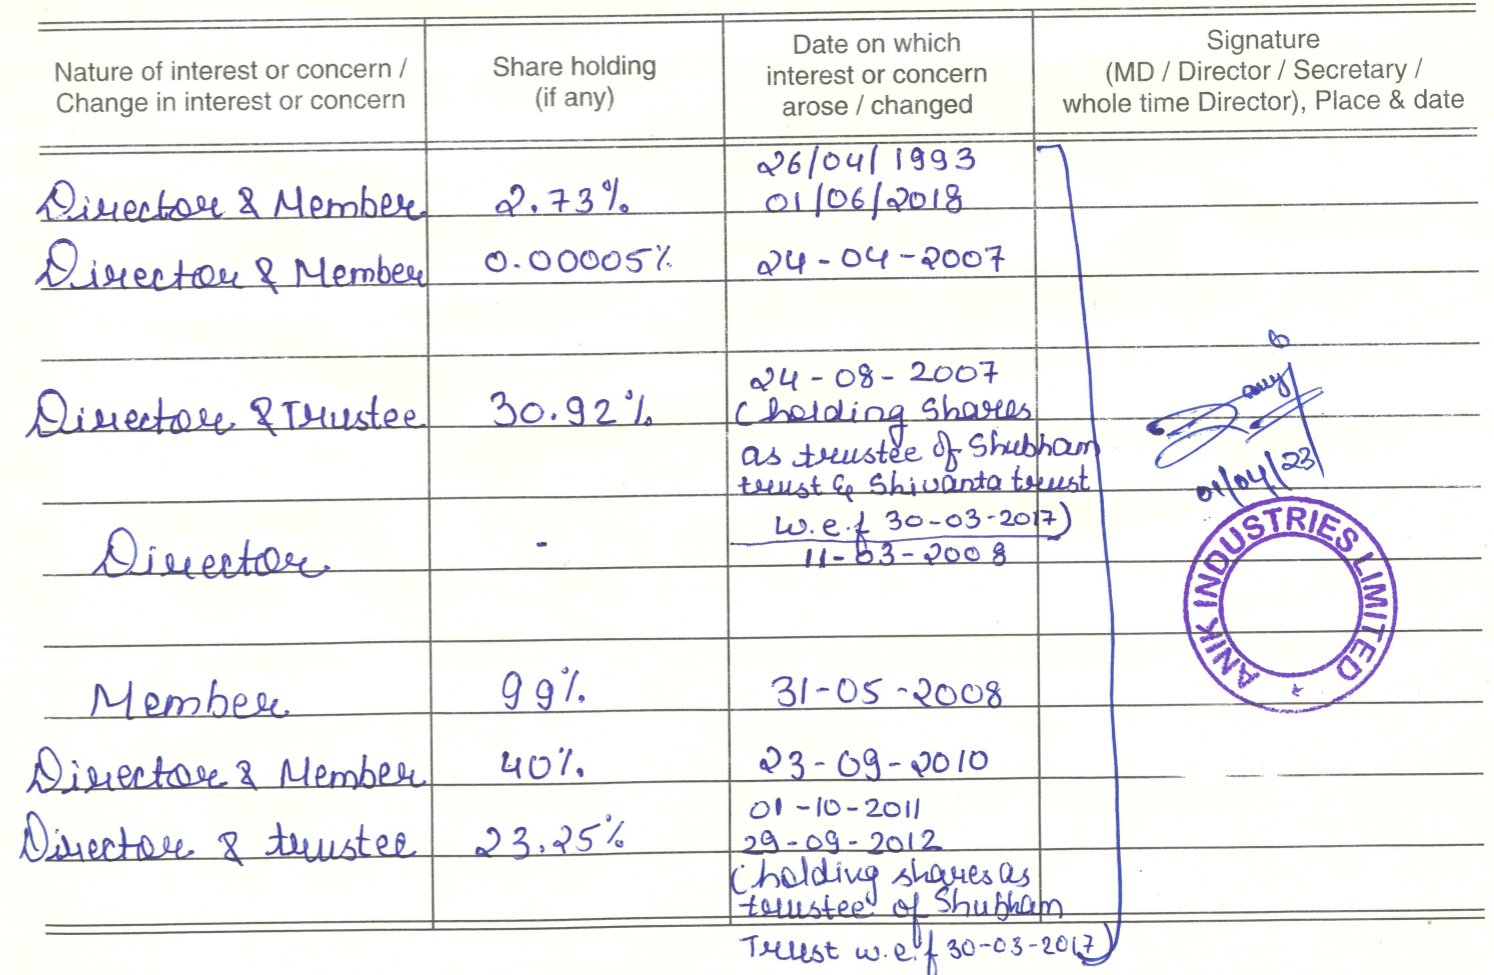 Nature of interest or concern /
Change in interest or concern
Share holding
(if any)
Date on which
interest or concern
arose / changed
Signature
(MD / Director / Secretary /
whole time Director), Place & date
Director & Member 2.73% 26/04/1993
01/06/2018
Director & Member 0.00005% 24-04-2007
Director & Trustee 30.92% 24-08-2007
(holding shares
as trustee of Shubham
trust & Shivanta trust
w.e.f 30-03-2017)
Director - 11-03-2008
01/04/23
ANIK INDUSTRIES LIMITED
Member 99% 31-05-2008
Director & Member 40% 23-09-2010
Director & trustee 23.25% 01-10-2011
29-09-2012
(holding shares as
trustee of Shubham
Trust w.e.f 30-03-2017)